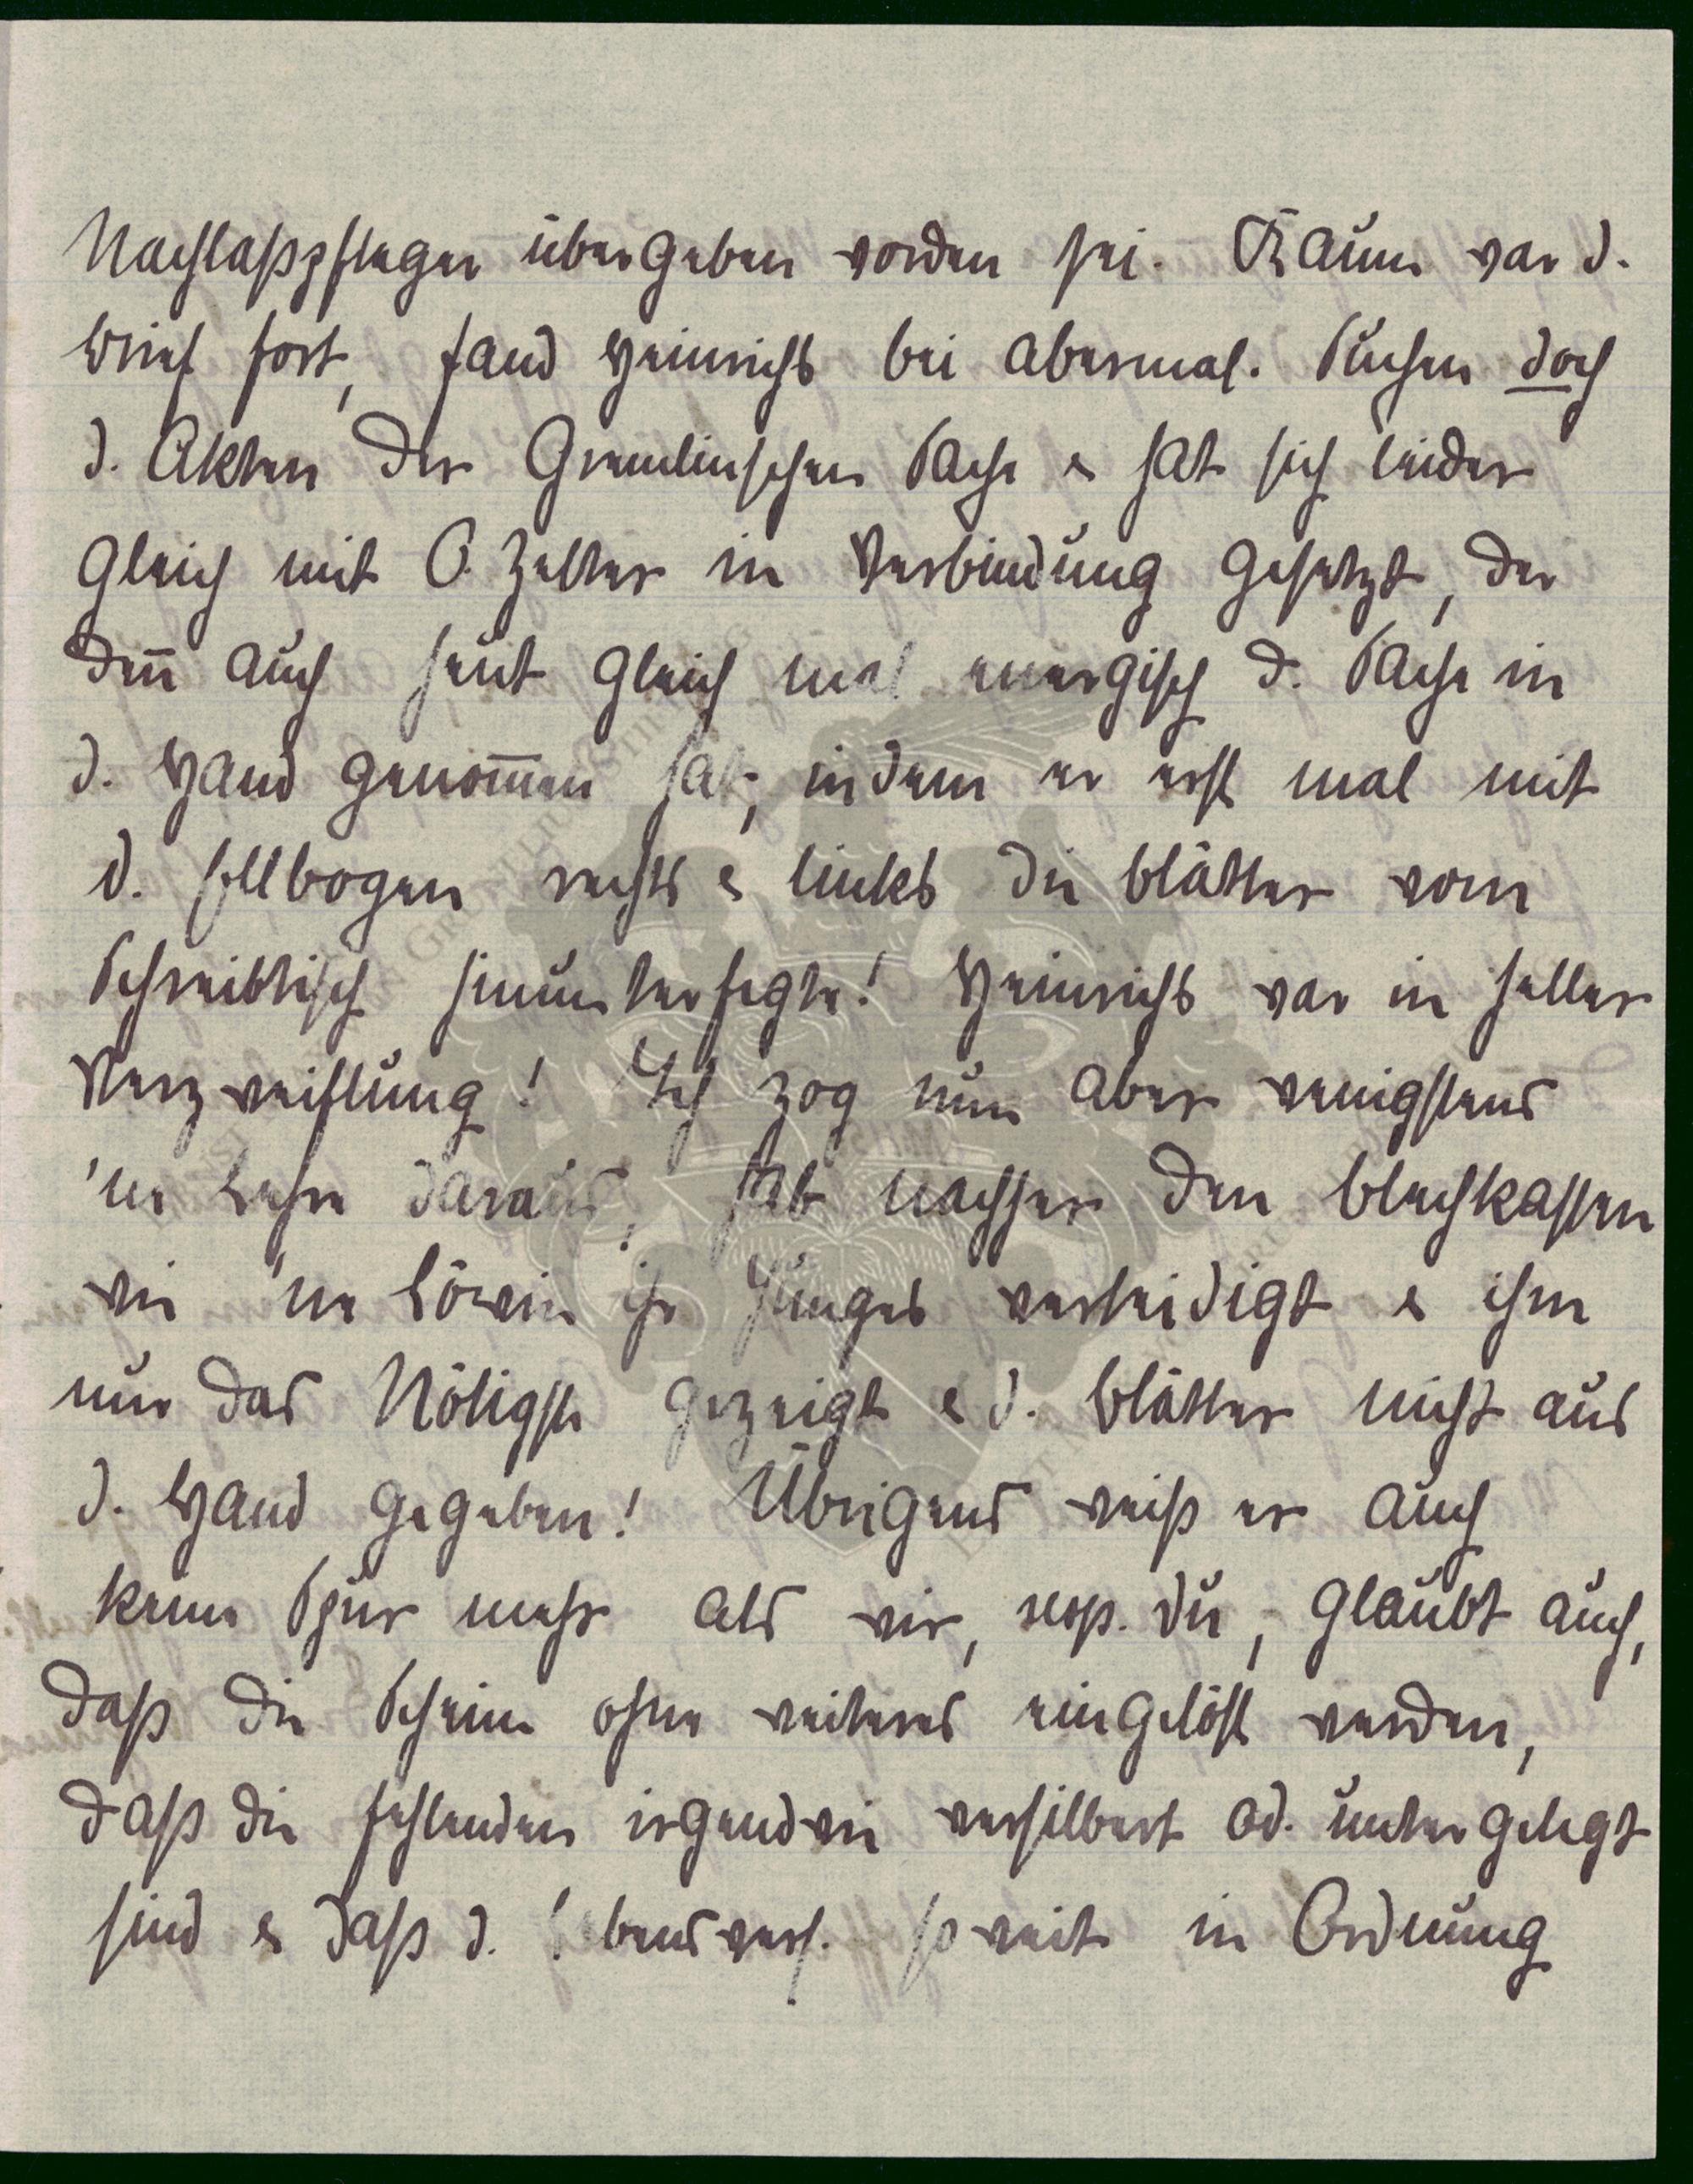 Nachlaßpfleger übergeben worden sei. Kaum war d.
Brief fort, fand Heinrichs bei abermal. Suchen doch
d. Akten der Gremlinschen Sache & hat sich leider
gleich mit O. Zelter in Verbindung gesetzt, der
den̄ auch heut gleich mal energisch d. Sache in
d. Hand genom̄en hat, indem er erst mal mit
d. Ellbogen rechts & links die Blätter vom
Schreibtisch hinunterfegte! Heinrichs war in heller
Verzweiflung! Ich zog nun aber wenigstens
'ne Lehre daraus, hab nachher den Blechkasten
wie 'ne Löwin ihr Junges verteidigt & ihm
nur das Nötigste gezeigt & d. Blätter nicht aus
d. Hand gegeben! Übrigens weiß er auch
keine Spur mehr als wir, resp. Du, glaubt auch,
daß die Scheine ohne weiteres eingelöst werden,
daß die fehlenden irgendwie versilbert od. untergelegt
sind & daß d. Lebensvers. so weit in Ordnung